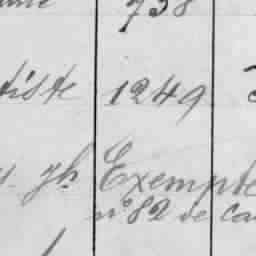 738
tiste 1249
jh Exempte
n° 82 de Can